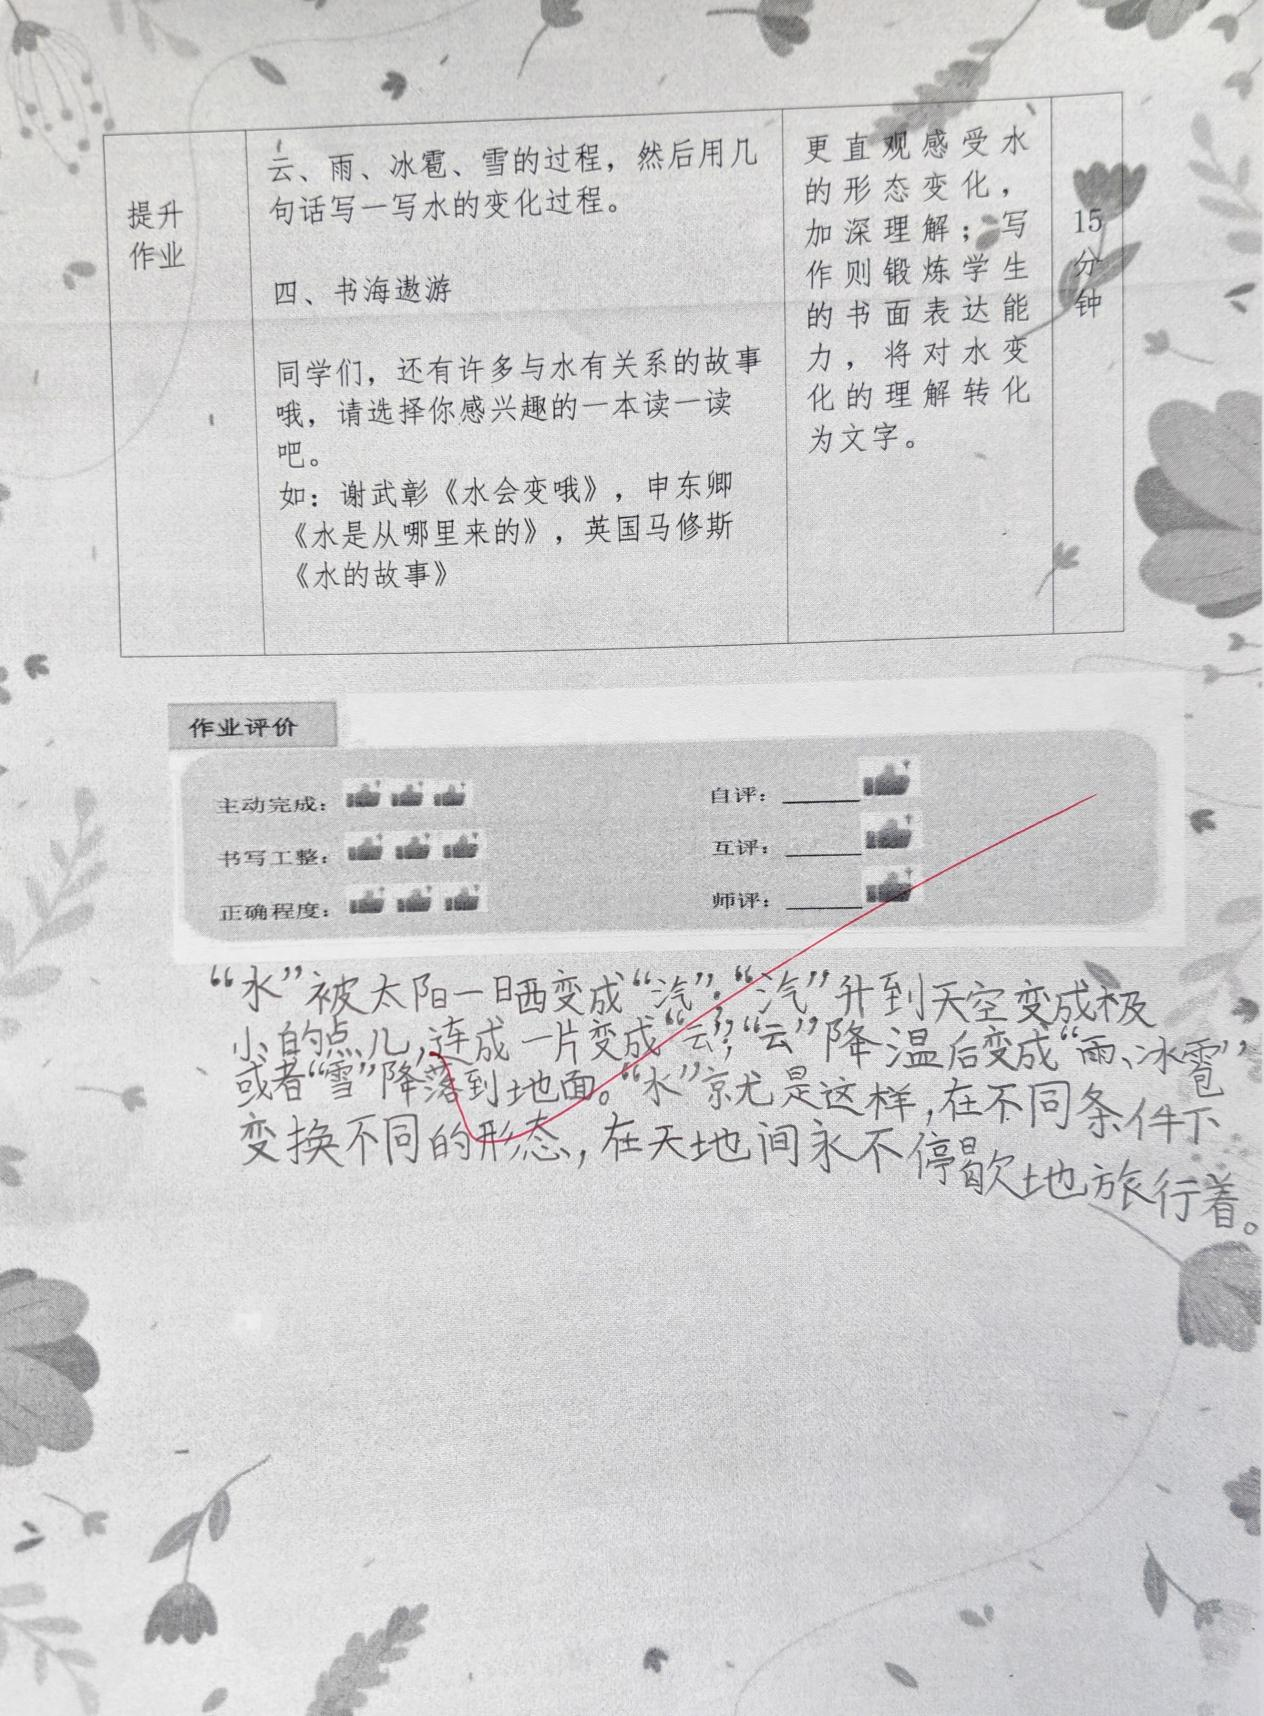 提升
作业
云、雨、冰雹、雪的过程，然后用几
句话写一写水的变化过程。
四、书海遨游
同学们，还有许多与水有关系的故事
哦，请选择你感兴趣的一本读一读
吧。
如：谢武彰《水会变哦》，申东卿
《水是从哪里来的》，英国马修斯
《水的故事》
更直观感受水
的形态变化，
加深理解；写
作则锻炼学生
的书面表达能
力，将对水变
化的理解转化
为文字。
15
分
钟
作业评价
主动完成：
自评：
书写工整：
互评：
正确程度：
师评：
“水”被太阳一晒变成“汽”。“汽”升到天空变成极
小的点儿，连成一片变成“云”；“云”降温后变成“雨、冰雹”
或者“雪”降落到地面。“水”就是这样，在不同条件下
变换不同的形态，在天地间永不停歇地旅行着。